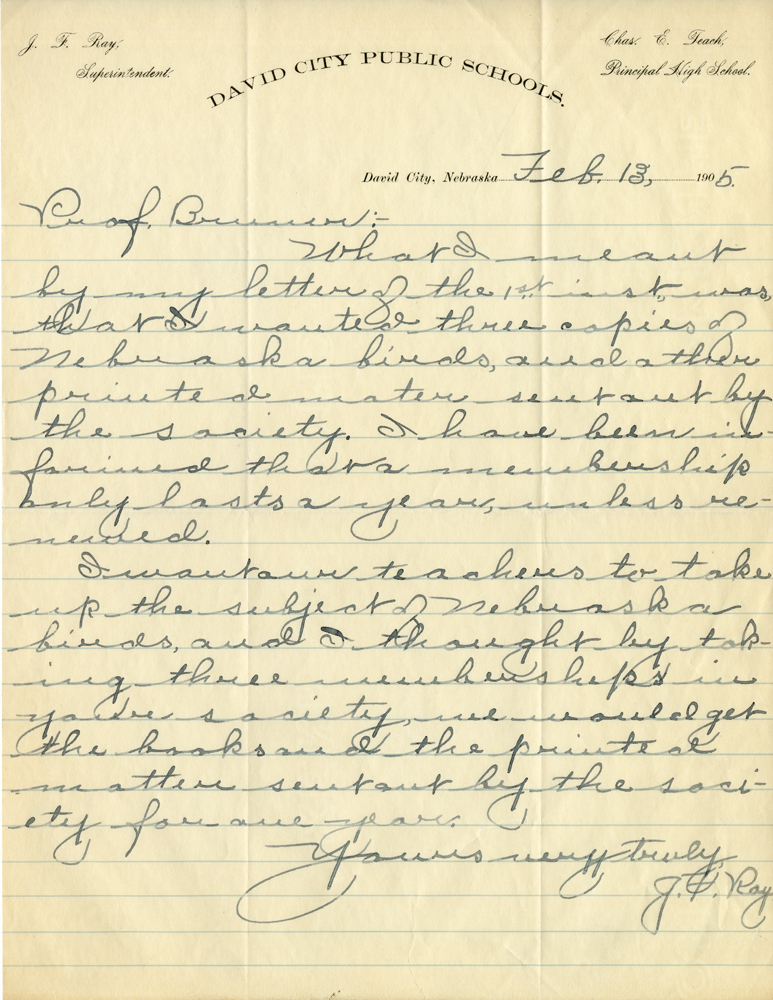 J. F. Ray,
Superintendent.
Chas. E. Teach,
Principal High School.
DAVID CITY PUBLIC SCHOOLS.
David City, Nebraska Feb. 13, 1905.
Prof. Bruner:-
What I meant
by my letter of the 1st inst, was,
that I wanted three copies of
Nebraska birds, and other
printed mater sent out by
the society. I have been in-
formed that a membership
only lasts a year, unless re-
newed.
I want our teachers to take
up the subject of Nebraska
birds, and I thought by tak-
ing three memberships in
your society, we would get
the books and the printed
matter sent out by the soci-
ety for one year.
Yours very truly,
J. F. Ray